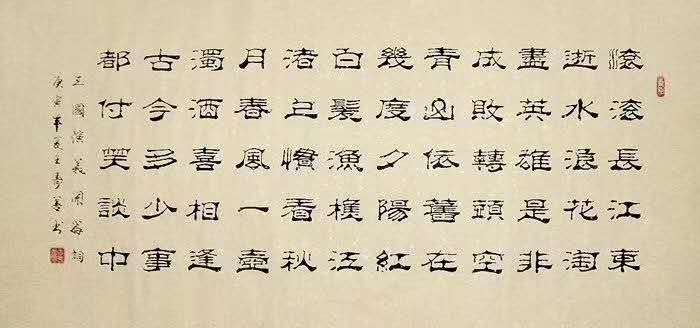 滾滾長江東
逝水浪花淘
盡英雄是非
成敗轉頭空
青山依舊在
幾度夕陽紅
白髮漁樵江
渚上慣看秋
月春風一壺
濁酒喜相逢
古今多少事
都付笑談中
三國演義開篇詞
庚寅年夏王書